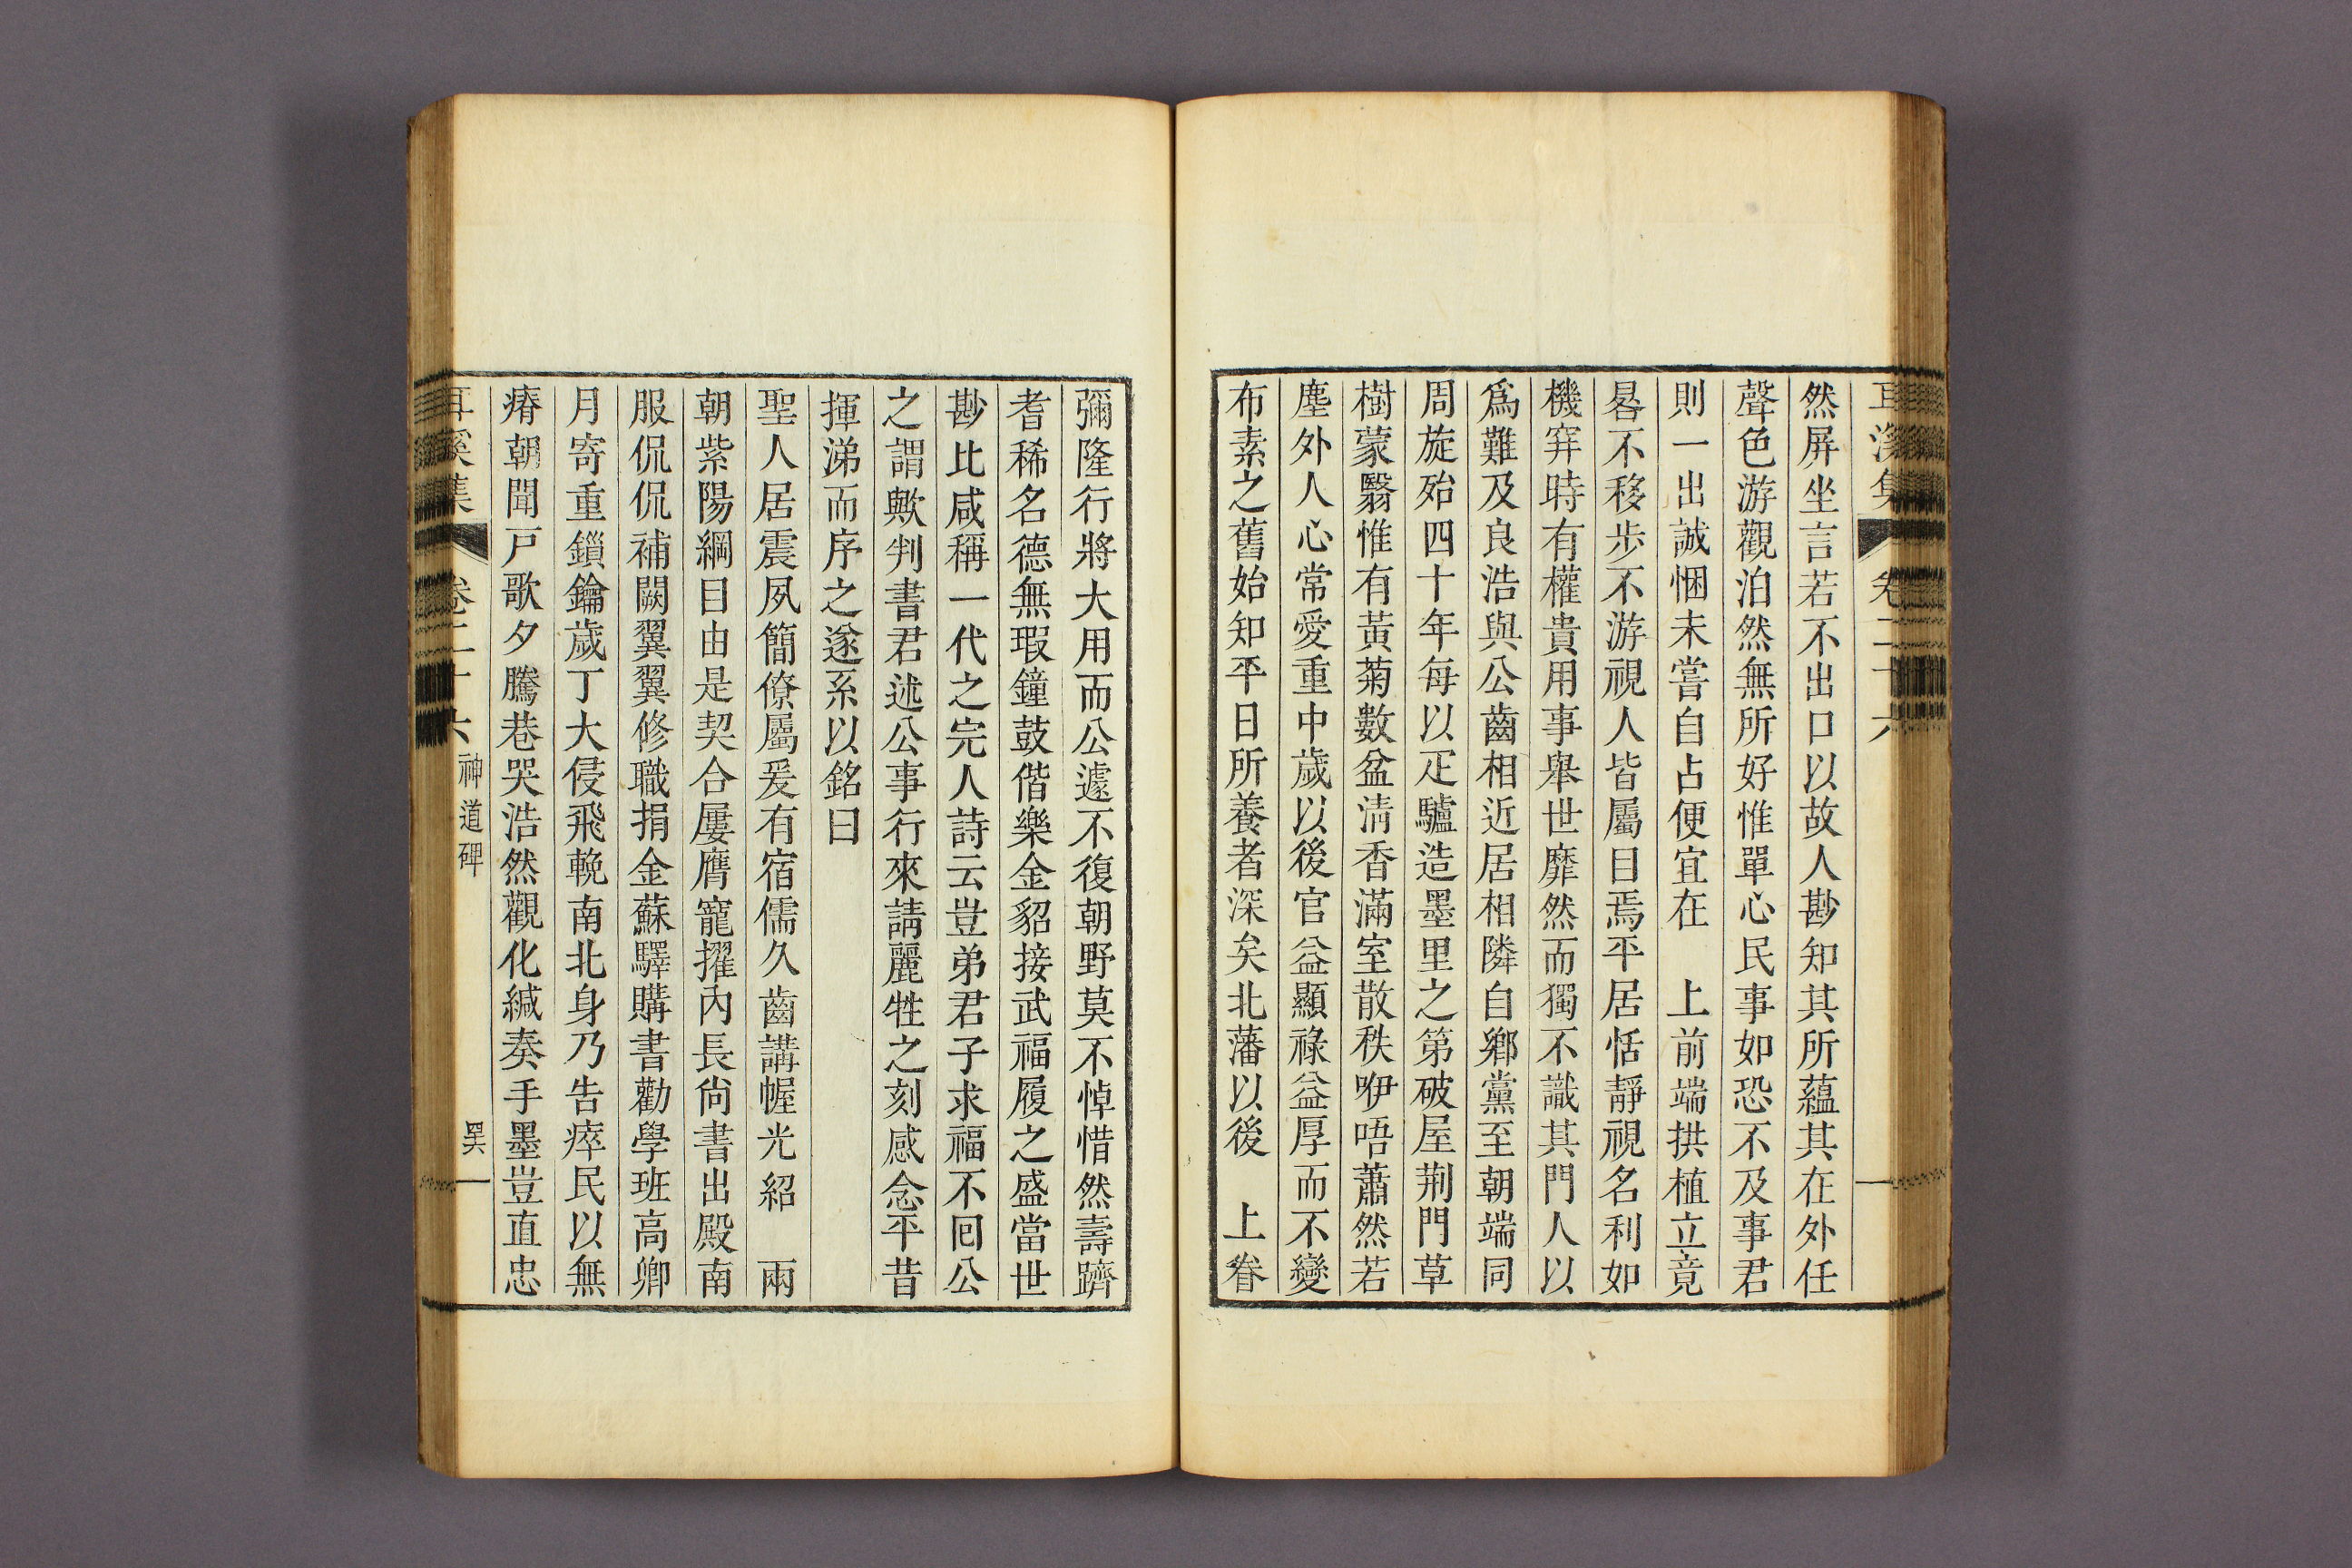 耳溪集 卷二十六
然屏坐言若不出口以故人尠知其所蘊其在外任
聲色游觀泊然無所好惟單心民事如恐不及事君
則一出誠悃未嘗自占便宜在 上前端拱植立竟
晷不移步不游視人皆屬目焉平居恬靜視名利如
機穽時有權貴用事舉世靡然而獨不識其門人以
爲難及良浩與公齒相近居相隣自鄕黨至朝端同
周旋殆四十年每以疋驢造墨里之第破屋荆門草
樹蒙翳惟有黃菊數盆淸香滿室散秩咿唔蕭然若
塵外人心常愛重中歲以後官益顯祿益厚而不變
布素之舊始知平日所養者深矣北藩以後 上眷
彌隆行將大用而公遽不復朝野莫不悼惜然壽躋
耆稀名德無瑕鐘鼓偕樂金貂接武福履之盛當世
尠比咸稱一代之完人詩云豈弟君子求福不回公
之謂歟判書君述公事行來請麗牲之刻感念平昔
揮涕而序之遂系以銘曰
聖人居震夙簡僚屬爰有宿儒久齒講幄光紹 兩
朝紫陽綱目由是契合屢膺寵擢內長尙書出殿南
服侃侃補闕翼翼修職捐金蘇驛購書勸學班高卿
月寄重鎖鑰歲丁大侵飛輓南北身乃告瘁民以無
瘠朝聞戸歌夕騰巷哭浩然觀化緘奏手墨豈直忠
耳溪集 卷二十六 神道碑 罘